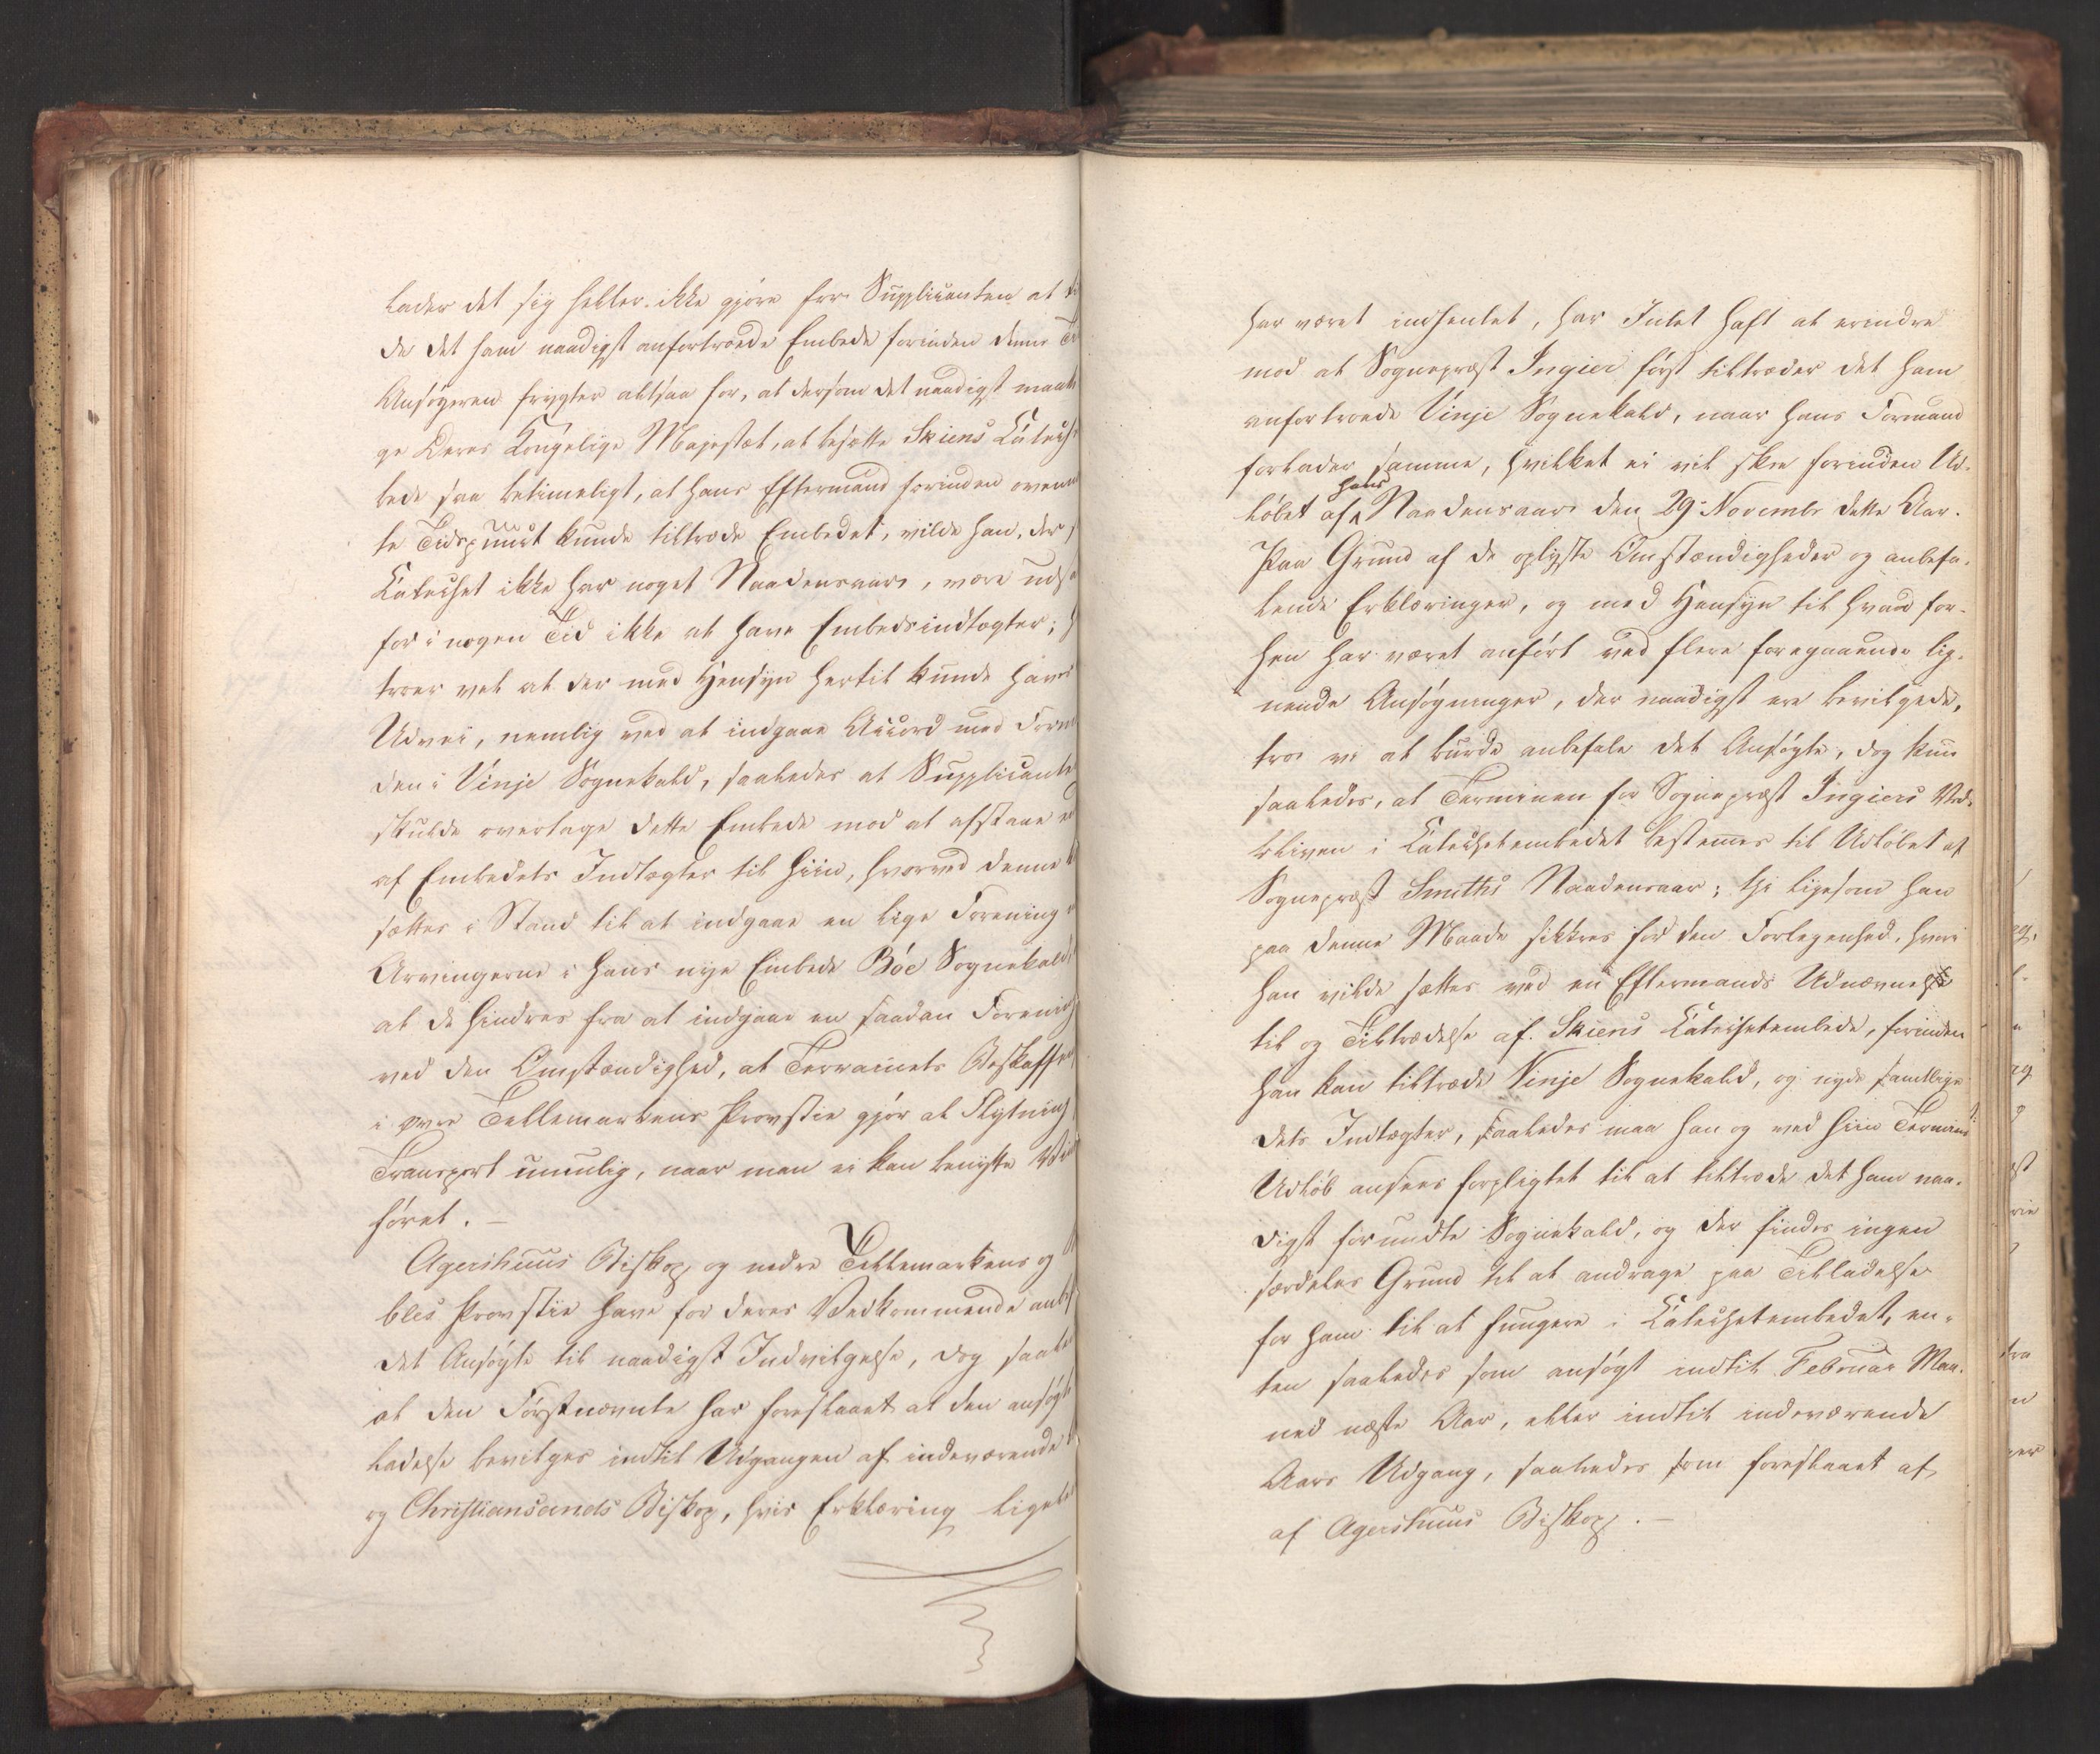 lader det sig heller ikke gjøre for Supplicanten at
de det ham naadigst anfortroede Embede forinden denne
Ansøgeren frygter altsaa for, at dersom det naadigst maatte
ge Deres Kongelige Majestæt, at besætte Skiens Catech
bede saa betimeligt, at hans Eftermand forinden ovenm
te Tidspunct kunde tiltræde Embedet, vilde han, der
Catechet ikke har noget Naadensaar, være udsa
for i nogen Tid ikke at have Embedsindtægter;
troer vel at der med Hensyn hertil kunde haves
Udvei, nemlig ved at indgaae Accord med Form
den i Vinje Sognekald, saaledes at Supplicante
skulde overtage dette Embede mod at afstaae
af Embedets Indtægter til Hiin, hvorved denne
sættes i Stand til at indgaae en lige Forening
Arvingerne i hans nye Embede Böe Sognekald
at de hindres fra at indgaae en saadan Forening
ved den Omstændighed, at Terrainets Beskaffen
i øvre Tellemarkens Provstie gjør al Flytning
Transport umulig, naar man ei kan benytte Vin
føret. —
Agershuus Biskop og nedre Tellemarkens og
bles Provstie have for deres Vedkommende anbef
det Ansøgte til naadigst Indvilgelse, dog saale
at den Førstnævnte har foreslaaet at den ansøgte
ladelse bevilges indtil Udgangen af indeværende
og Christiansands Biskop, hvis Erklæring ligele
har været indhentet, har Intet haft at erindre
mod at Sognepræst Ingier først tiltræder det ham
anfortroede Vinje Sognekald, naar hans Formand
forlader samme, hvilket ei vil skee forinden Ud-
løbet af hans Naadensaar den 29. Novembr dette Aar.
Paa Grund af de oplyste Omstændigheder og anbefa-
lende Erklæringer, og med Hensyn til hvad for-
hen har været anført ved flere foregaaende lig-
nende Ansøgninger, der naadigst ere bevilgede,
troe vi at burde anbefale det Ansøgte, dog kun
saaledes, at Terminen for Sognepræst Ingiers Ved-
bliven i Catechetembedet bestemmes til Udløbet af
Sognepræst Smiths Naadensaar; thi ligesom han
paa denne Maade sikkres for den Forlegenhed, hvori
han vilde sættes ved en Eftermands Udnævnelse
til og Tiltrædelse af Skiens Catechetembede, forinden
han kan tiltræde Vinje Sognekald, og nyde samtlige
dets Indtægter, saaledes maa han og ved hiin Termins
Udløb ansees forpligtet til at tiltræde det ham naa-
digst forundte Sognekald, og der findes ingen
særdeles Grund til at andrage paa Tilladelse
for ham til at fungere i Catechetembedet, en-
ten saaledes som ansøgt indtil Februar Maa-
ned næste Aar, eller indtil indeværende
Aars Udgang, saaledes som foreslaaet af
af Agershuus Biskop. —